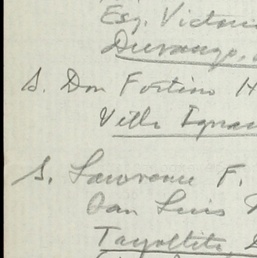 Esq. Victoria
Durango,
S. Don Fortino H
Villa Ignac
S. Lawrence F.
San Luis
Tayoltita, D